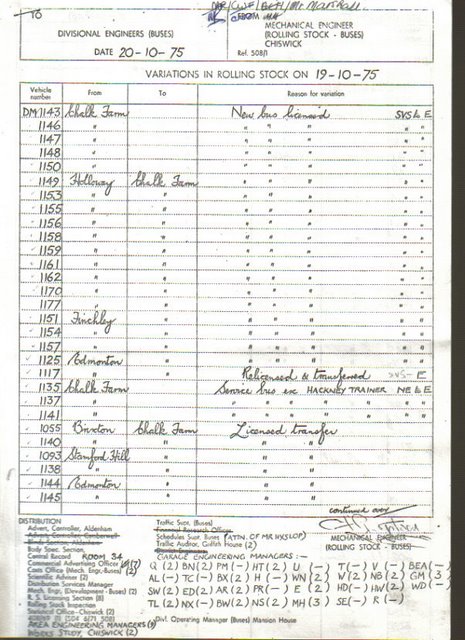 TO
DIVISIONAL ENGINEERS (BUSES)
DATE 20-10-75
FROM
MECHANICAL ENGINEER
(ROLLING STOCK - BUSES)
CHISWICK
Ref. 508/1
VARIATIONS IN ROLLING STOCK ON 19-10-75
Vehicle number From To Reason for variation
DM1143 Chalk Farm New bus licensed SVS & E
1146 " " " " " "
1147 " " " " " "
1148 " " " " " "
1150 " " " " " "
1149 Holloway Chalk Farm " " " " "
1153 " " " " " " "
1155 " " " " " " "
1156 " " " " " " "
1158 " " " " " " "
1159 " " " " " " "
1161 " " " " " " "
1162 " " " " " " "
1170 " " " " " " "
1177 " " " " " " "
1151 Finchley " " " " " "
1154 " " " " " " "
1157 " " " " " " "
1125 Edmonton " " " " " "
1117 " " Relicensed & transferred SVS - E
1135 Chalk Farm Service bus ex HACKNEY TRAINER NE & E
1137 " " " " " " " "
1141 " " " " " " " "
1055 Brixton Chalk Farm Licensed transfer
1140 " " " "
1093 Stamford Hill " " "
1138 " " " "
1144 Edmonton " " "
1145 " " " "
continued over
MECHANICAL ENGINEER
(ROLLING STOCK - BUSES)
DISTRIBUTION
Advert. Controller, Aldenham
Body Spec. Section,
Central Record ROOM 34
Commercial Advertising Officer
Costs Office (Mech. Engr. Buses) (2)
Scientific Adviser (2)
Distribution Services Manager
Mech. Engr. (Development - Buses) (2)
R. S. Licensing Section
Rolling Stock Inspection
Divisional Office - Chiswick (2)
AREA ENGINEERING MANAGERS
WORKS STUDY, CHISWICK (2)
Traffic Supt. (Buses)
Schedules Supt. (Buses) (ATTN. OF MR HYSLOP)
Traffic Auditor, Griffith House (2)
GARAGE ENGINEERING MANAGERS :-
Q (2) BN(2) PM (-) HT(2) U (-) T(-) V (-) BEA(-)
AL (-) TC(-) BX(2) H (-) WN(2) W(2) NB(2) GM(3)
SW(2) ED(2) AR(2) PR(-) E (2) HD(-) HW(2) WD(-)
TL(2) NX(-) BW(2) NS(2) MH(3) SE(-) R (-)
Divl. Operating Manager (Buses) Mansion House